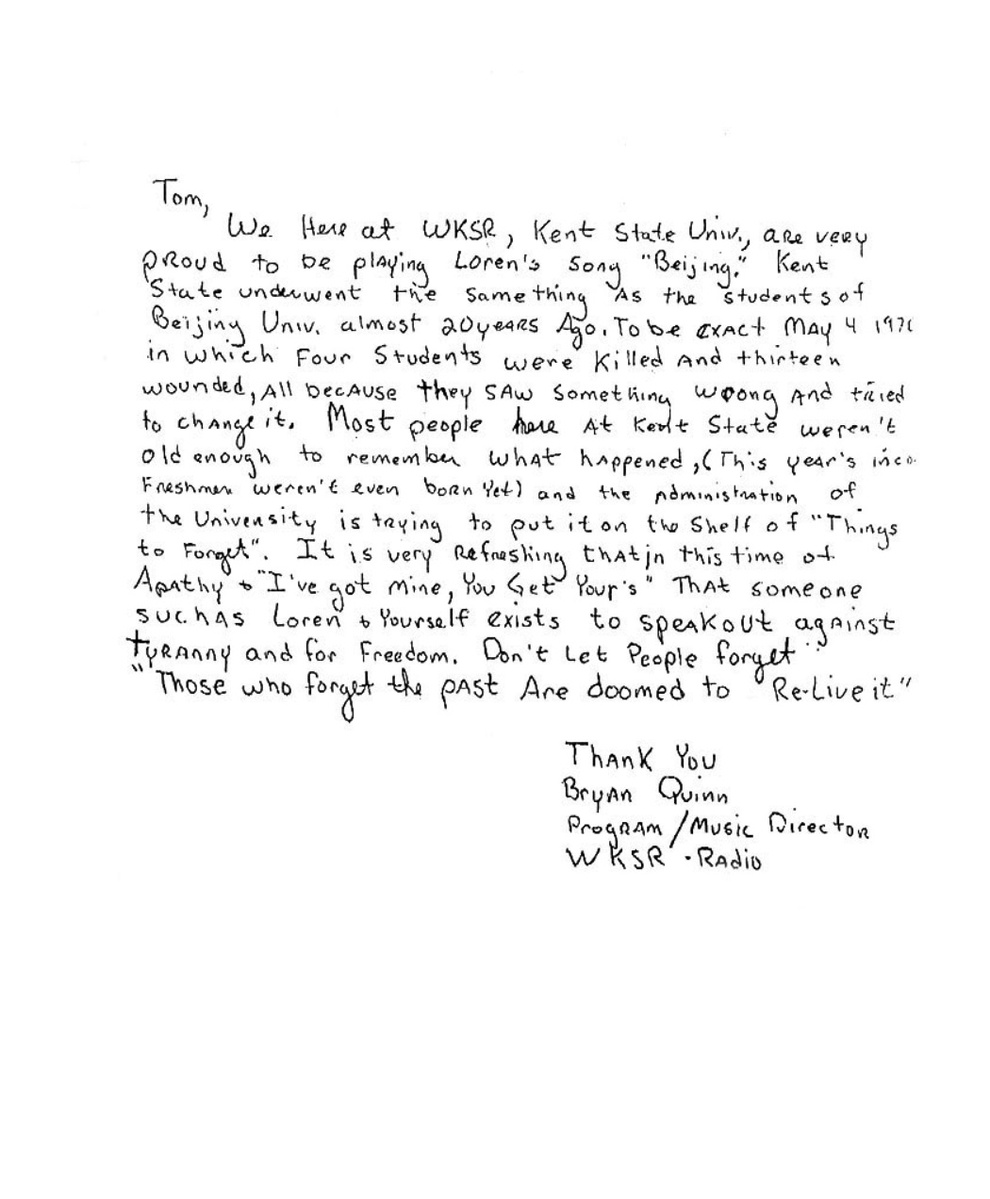 Tom,
We Here at WKSR, Kent State Univ., are very
proud to be playing Loren's song "Beijing." Kent
State underwent the same thing As the students of
Beijing Univ. almost 20 years Ago. To be exact May 4 197
in which Four Students were Killed And thirteen
wounded, All because they saw something wrong And tried
to change it. Most people here At Kent State weren't
old enough to remember what happened, (This year's inco
Freshmen weren't even born Yet) and the Administration of
the University is trying to put it on the Shelf of "Things
to Forget". It is very Refreshing that in this time of
Apathy & "I've got Mine, You Get Your's" That someone
such as Loren & Yourself exists to speak out against
tyranny and for Freedom. Don't Let People forget
"Those who forget the past Are doomed to "Re-Live it"
Thank You
Bryan Quinn
Program/Music Director
WKSR · Radio